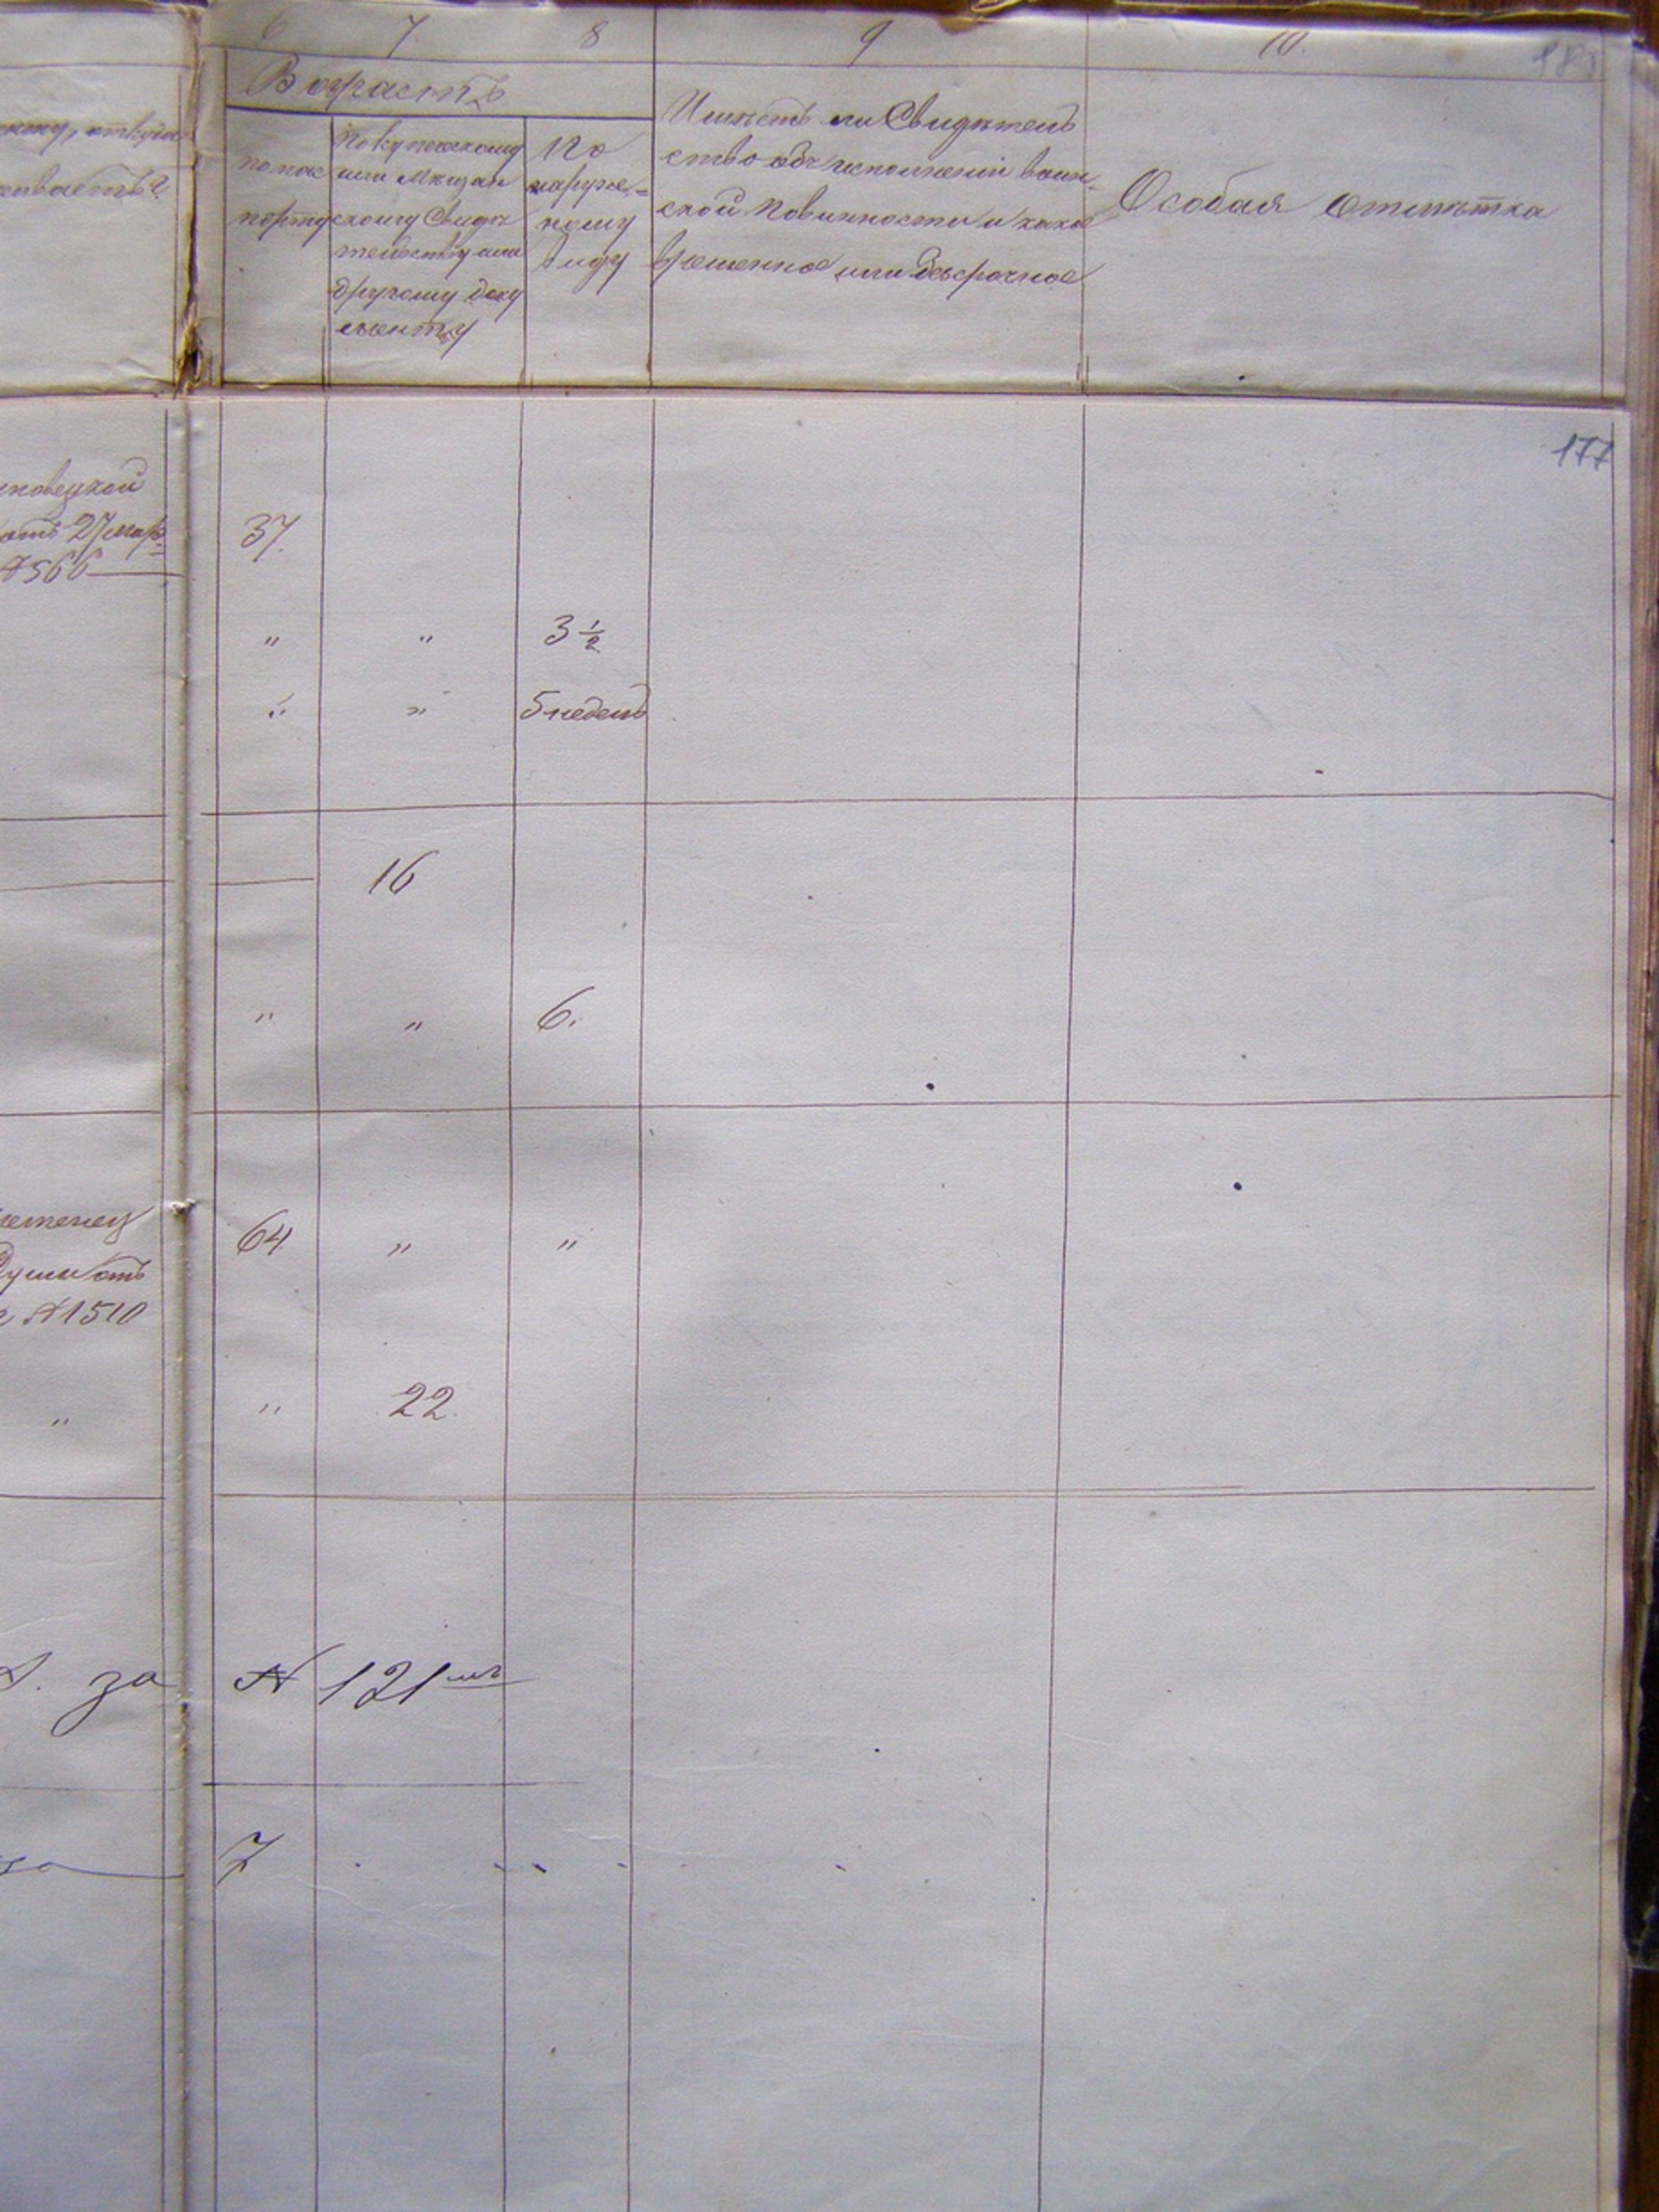 6 7 8 9 10. 181
Возрастъ
откуда
по пас
порту
По купеческому
или мѣщан
скому Свидѣ
тельству или
другому доку
менту
По
наруж=
ному
виду
Имѣетъ ли Свидѣтель
ство объ исполненіи воин
ской повинности и какое
временное или безсрочное
Особая отмѣтка
177
отъ 27 мар.
№566
37.
" " 3 1/2
" " 5 недель
16
" " 6.
64 " "
отъ
№1510
" " 22.
за № 121мъ
7